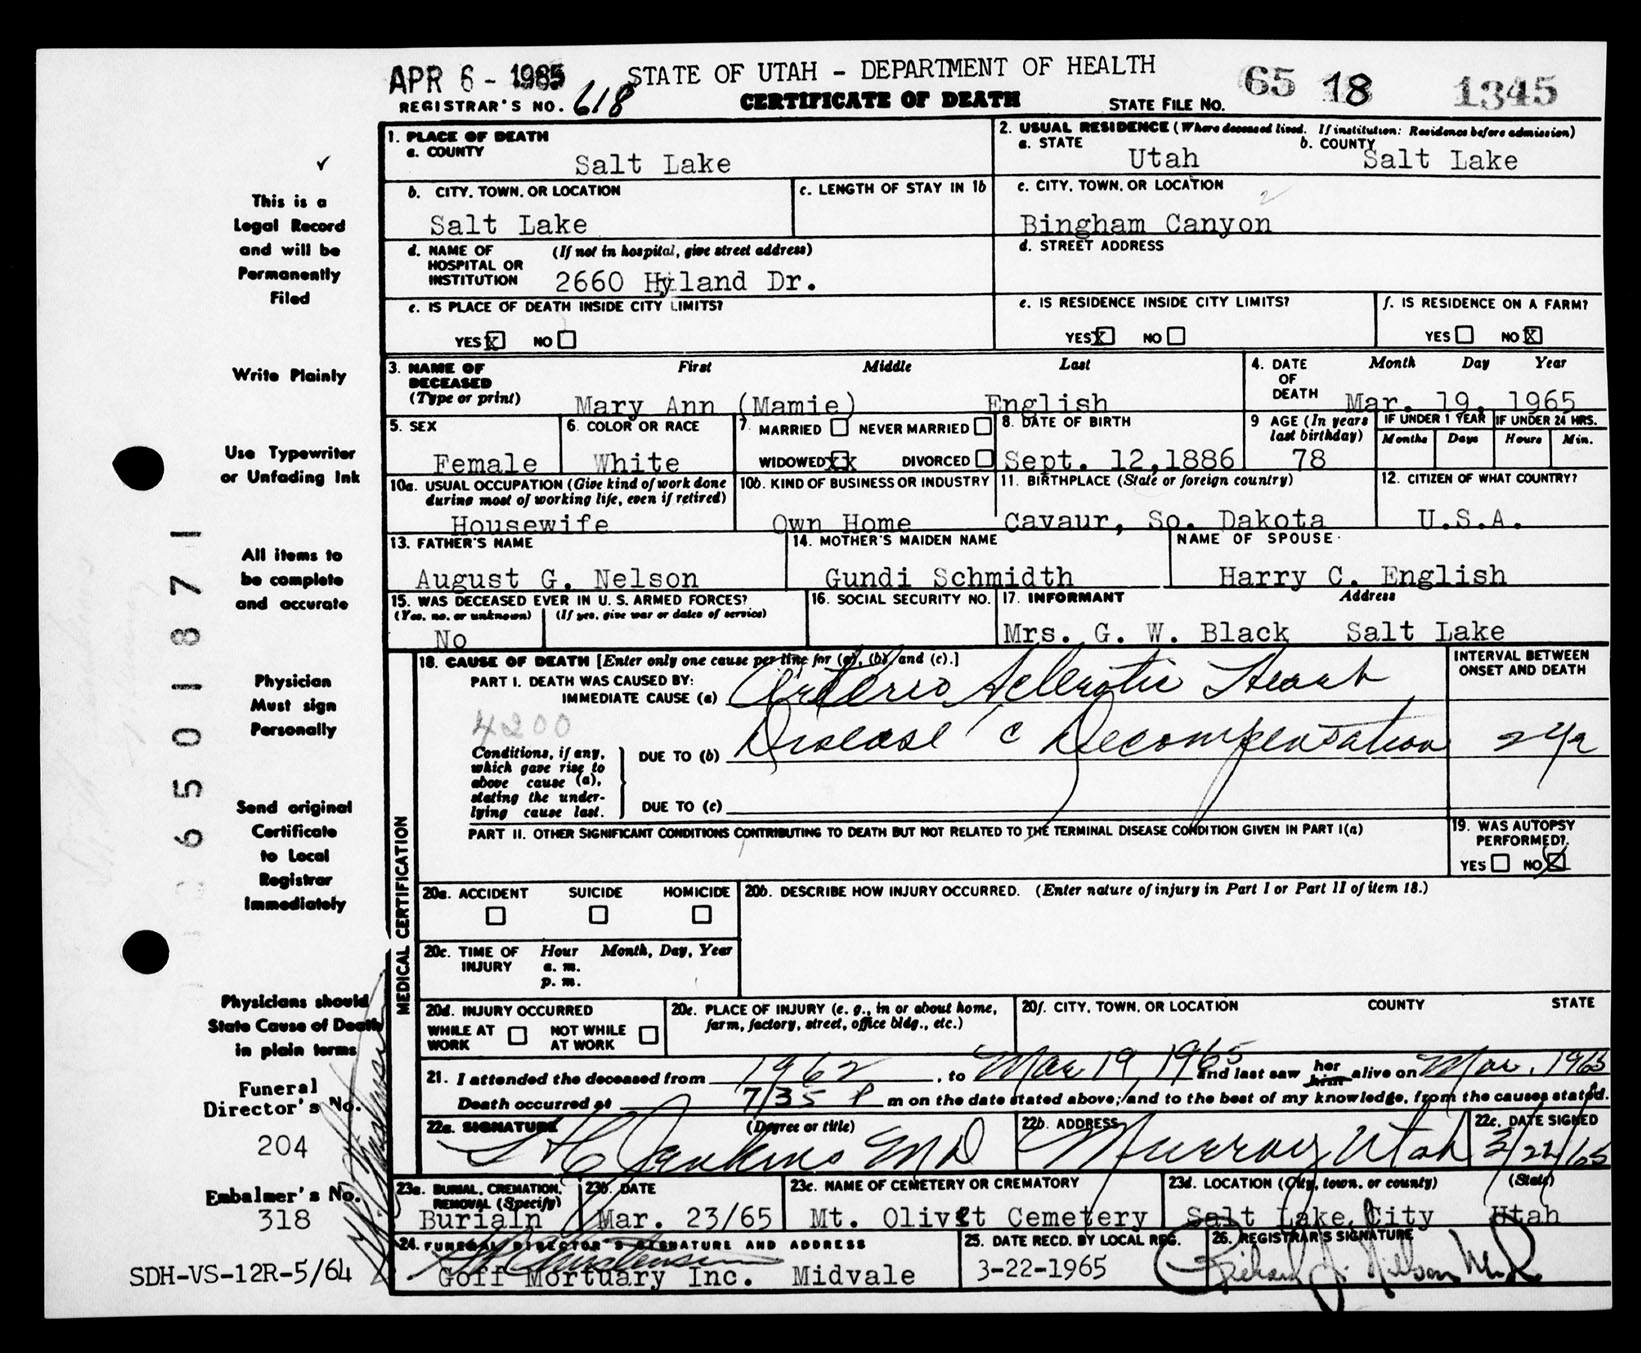 APR 6 - 1965 STATE OF UTAH - DEPARTMENT OF HEALTH 65 18 1345
REGISTRAR'S NO. 618 CERTIFICATE OF DEATH STATE FILE NO.
1. PLACE OF DEATH
a. COUNTY
Salt Lake
2. USUAL RESIDENCE (Where deceased lived. If institution: Residence before admission)
a. STATE b. COUNTY
Utah Salt Lake
b. CITY, TOWN, OR LOCATION
Salt Lake
c. LENGTH OF STAY IN 1b
c. CITY, TOWN, OR LOCATION
Bingham Canyon
d. NAME OF (If not in hospital, give street address)
HOSPITAL OR
INSTITUTION 2660 Hyland Dr.
d. STREET ADDRESS
e. IS PLACE OF DEATH INSIDE CITY LIMITS?
YES X NO
e. IS RESIDENCE INSIDE CITY LIMITS?
YES X NO
f. IS RESIDENCE ON A FARM?
YES NO X
3. NAME OF First Middle Last
DECEASED
(Type or print) Mary Ann (Mamie) English
4. DATE Month Day Year
OF
DEATH Mar. 19, 1965
5. SEX
Female
6. COLOR OR RACE
White
7. MARRIED NEVER MARRIED
WIDOWED XX DIVORCED
8. DATE OF BIRTH
Sept. 12,1886
9 AGE (In years
last birthday)
78
IF UNDER 1 YEAR IF UNDER 24 HRS.
Months Days Hours Min.
10a. USUAL OCCUPATION (Give kind of work done
during most of working life, even if retired)
Housewife
10b. KIND OF BUSINESS OR INDUSTRY
Own Home
11. BIRTHPLACE (State or foreign country)
Cavaur, So. Dakota
12. CITIZEN OF WHAT COUNTRY?
U.S.A.
13. FATHER'S NAME
August G. Nelson
14. MOTHER'S MAIDEN NAME
Gundi Schmidth
NAME OF SPOUSE
Harry C. English
15. WAS DECEASED EVER IN U. S. ARMED FORCES?
(Yes, no, or unknown) (If yes, give war or dates of service)
No
16. SOCIAL SECURITY NO.
17. INFORMANT Address
Mrs. G. W. Black Salt Lake
MEDICAL CERTIFICATION
18. CAUSE OF DEATH [Enter only one cause per line for (a), (b), and (c).]
INTERVAL BETWEEN
ONSET AND DEATH
PART I. DEATH WAS CAUSED BY:
IMMEDIATE CAUSE (a) Arterio Sclerotic Heart
4200
Conditions, if any,
which gave rise to
above cause (a),
stating the under-
lying cause last.
DUE TO (b) Disease c Decompensation
DUE TO (c)
PART II. OTHER SIGNIFICANT CONDITIONS CONTRIBUTING TO DEATH BUT NOT RELATED TO THE TERMINAL DISEASE CONDITION GIVEN IN PART I(a)
19. WAS AUTOPSY
PERFORMED?
YES NO
20a. ACCIDENT SUICIDE HOMICIDE
20b. DESCRIBE HOW INJURY OCCURRED. (Enter nature of injury in Part I or Part II of item 18.)
20c. TIME OF Hour Month, Day, Year
INJURY a. m.
p. m.
20d. INJURY OCCURRED
WHILE AT NOT WHILE
WORK AT WORK
20e. PLACE OF INJURY (e. g., in or about home,
farm, factory, street, office bldg., etc.)
20f. CITY, TOWN, OR LOCATION COUNTY STATE
21. I attended the deceased from 1962, to Mar 19 1965 and last saw her him alive on Mar. 1965
Death occurred at 7/35 P m on the date stated above; and to the best of my knowledge, from the causes stated.
22a. SIGNATURE (Degree or title)
Jenkins MD
22b. ADDRESS
Murray Utah
22c. DATE SIGNED
3/22/65
23a. BURIAL, CREMATION,
REMOVAL (Specify)
Burialn
23b. DATE
Mar. 23/65
23c. NAME OF CEMETERY OR CREMATORY
Mt. Olivet Cemetery
23d. LOCATION (City, town, or county) (State)
Salt Lake City Utah
24. FUNERAL DIRECTOR'S SIGNATURE AND ADDRESS
Goff Mortuary Inc. Midvale
25. DATE RECD. BY LOCAL REG.
3-22-1965
26. REGISTRAR'S SIGNATURE
This is a
Legal Record
and will be
Permanently
Filed
Write Plainly
Use Typewriter
or Unfading Ink
All items to
be complete
and accurate
Physician
Must sign
Personally
Send original
Certificate
to Local
Registrar
Immediately
Physicians should
State Cause of Death
in plain terms
Funeral
Director's No.
204
Embalmer's No.
318
SDH-VS-12R-5/64
6501871